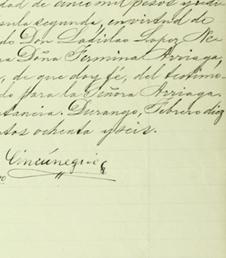 dad de cinco mil pesos y
segunda, en virtud de
do Don Ladislao Lopez Ne
ra Doña Fermina Arriaga,
, de que doy fé, del testimo
do para la Señora Arriaga.
tancia. Durango, Febrero diez
tos ochenta y seis.